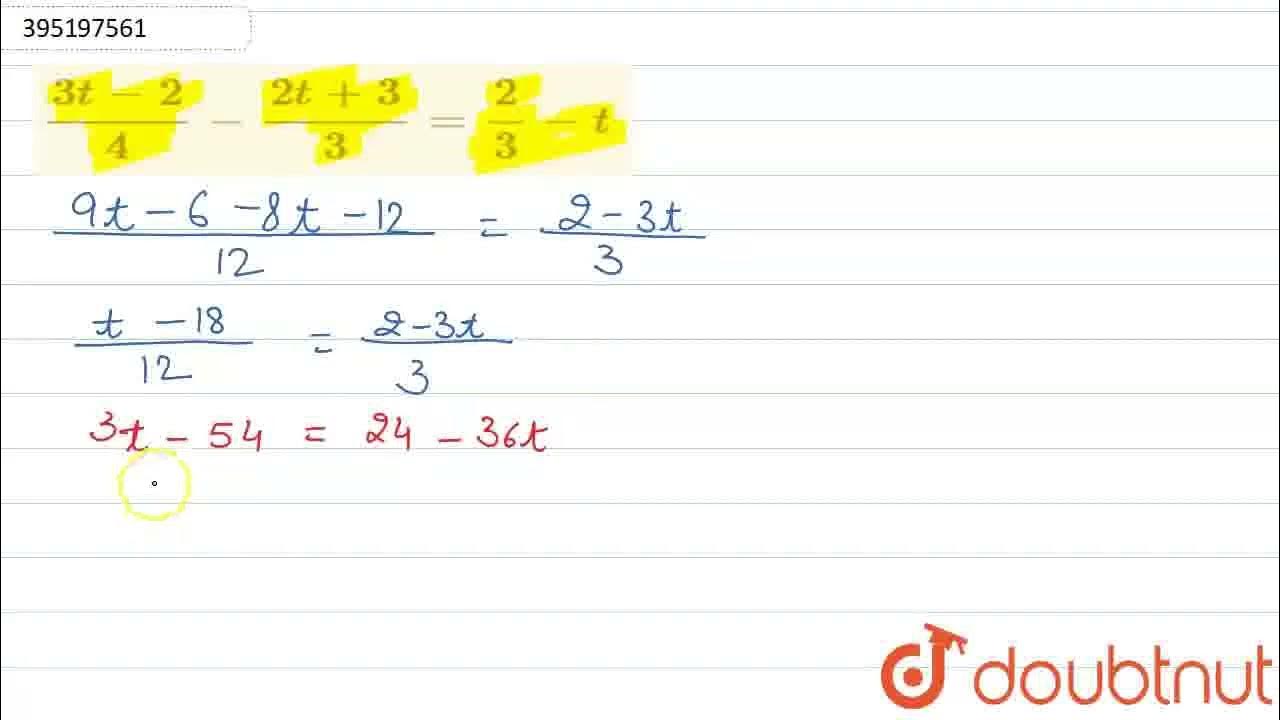 395197561
(3t − 2)/4 − (2t + 3)/3 = 2/3 − t
(9t − 6 − 8t − 12)/12 = (2 − 3t)/3
(t − 18)/12 = (2 − 3t)/3
3t − 54 = 24 − 36t
doubtnut